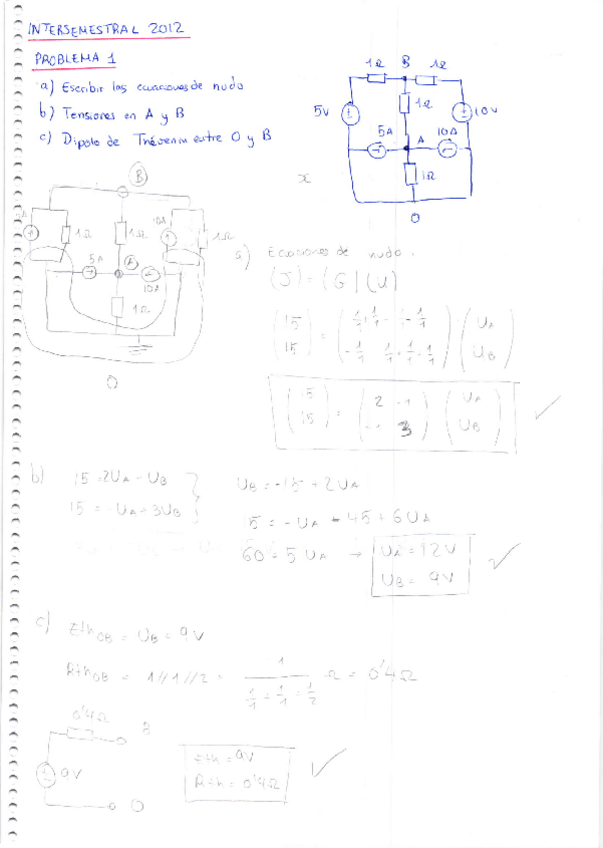 INTERSEMESTRAL 2012
PROBLEMA 1
a) Escribir las ecuaciones de nudo
b) Tensiones en A y B
c) Dipolo de Thévenin entre O y B
1Ω B 1Ω
5V 1Ω 10V
5A A 10A
1Ω
O
B
1Ω 1Ω 10A 1Ω
5A A 10A
1Ω
O
a) Ecuaciones de nudo.
(J) = (G)(U)
(15 15) = (1/1+1/1 -1/1 -1/1 1/1+1/1+1/1) (UA UB)
(15 15) = (2 -1 -1 3) (UA UB)
b) 15=2UA-UB
15=-UA+3UB
UB=-15+2UA
15=-UA-45+6UA
60=5UA → UA=12V
UB=9V
c) EthOB = UB = 9V
RthOB = 1//1//2 = 1 / (1/1 + 1/1 + 1/2) Ω = 0'4Ω
0'4Ω B
9V O
Eth=9V
Rth=0'4Ω